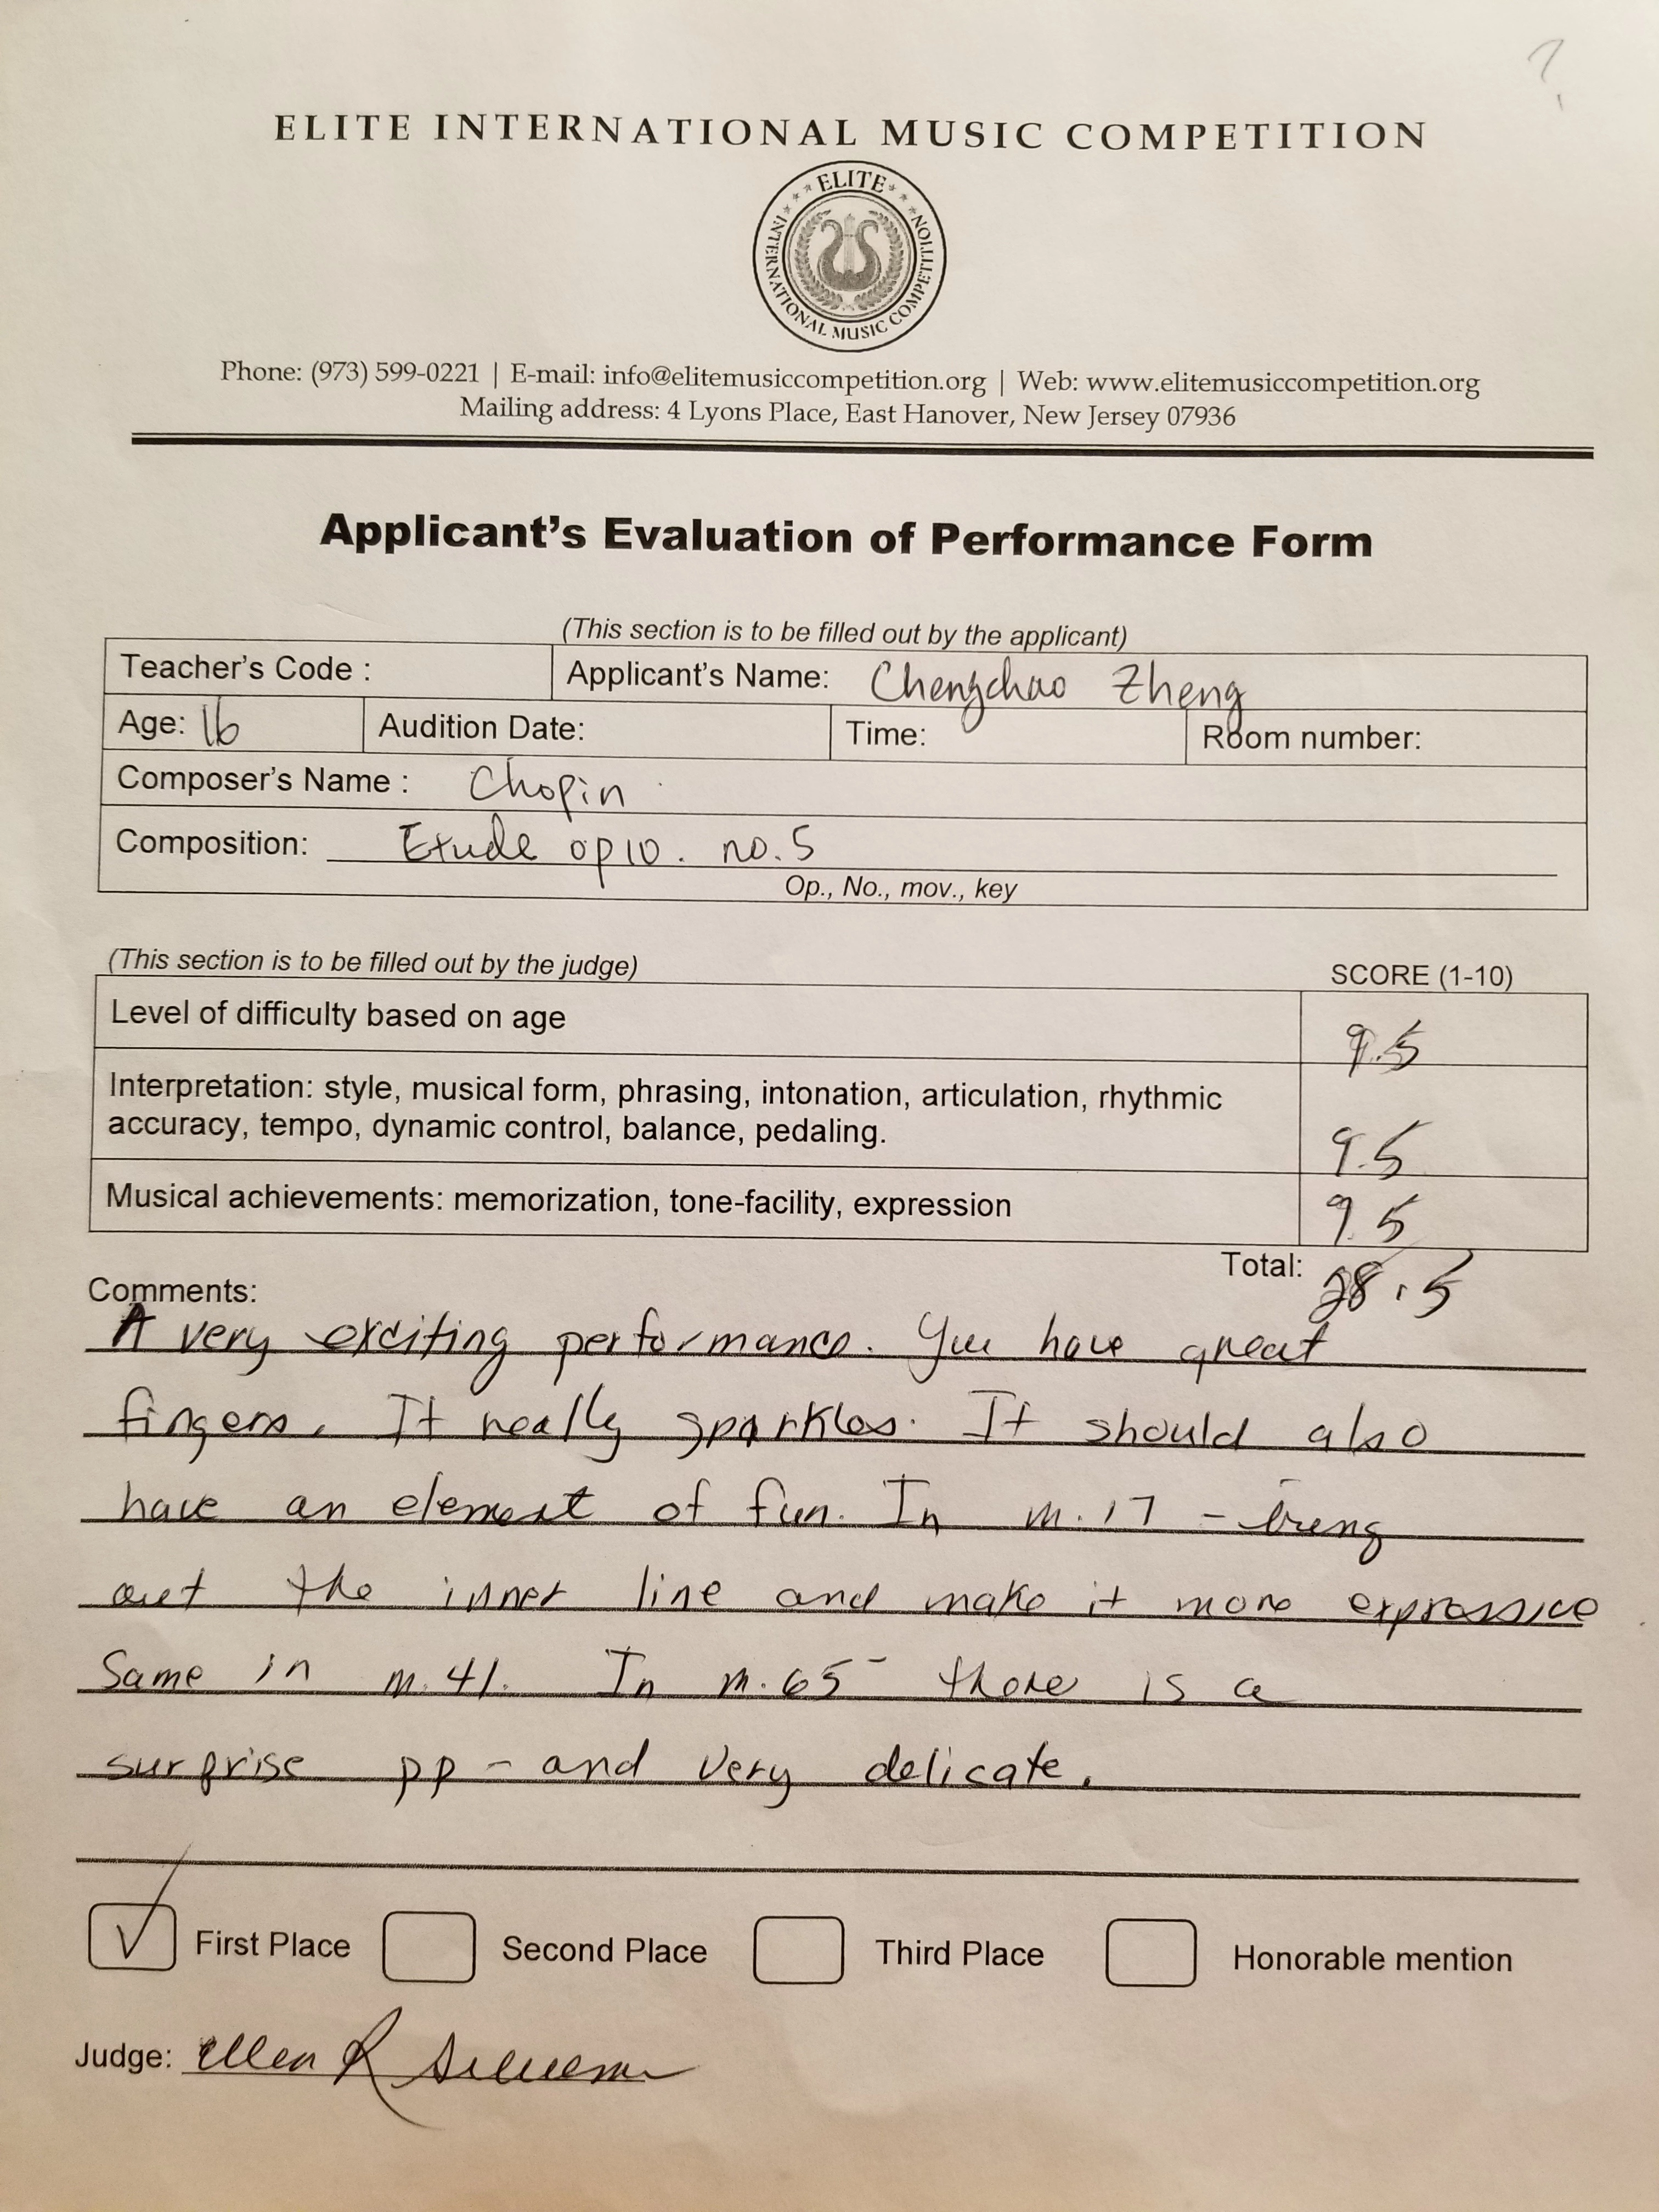 ?
ELITE INTERNATIONAL MUSIC COMPETITION
ELITE
INTERNATIONAL MUSIC COMPETITION
Phone: (973) 599-0221 | E-mail: info@elitemusiccompetition.org | Web: www.elitemusiccompetition.org
Mailing address: 4 Lyons Place, East Hanover, New Jersey 07936
Applicant's Evaluation of Performance Form
(This section is to be filled out by the applicant)
Teacher's Code : Applicant's Name: Chengchao Zheng
Age: 16 Audition Date: Time: Room number:
Composer's Name : Chopin
Composition: Etude op10. no.5
Op., No., mov., key
(This section is to be filled out by the judge) SCORE (1-10)
Level of difficulty based on age 9.5
Interpretation: style, musical form, phrasing, intonation, articulation, rhythmic
accuracy, tempo, dynamic control, balance, pedaling. 9.5
Musical achievements: memorization, tone-facility, expression 9.5
Total: 28.5
Comments:
A very exciting performance. You have great
fingers. It really sparkles. It should also
have an element of fun. In m.17 - bring
out the inner line and make it more expressive
Same in m.41. In m.65 - there is a
surprise pp - and very delicate.
First Place Second Place Third Place Honorable mention
Judge: Ellen R